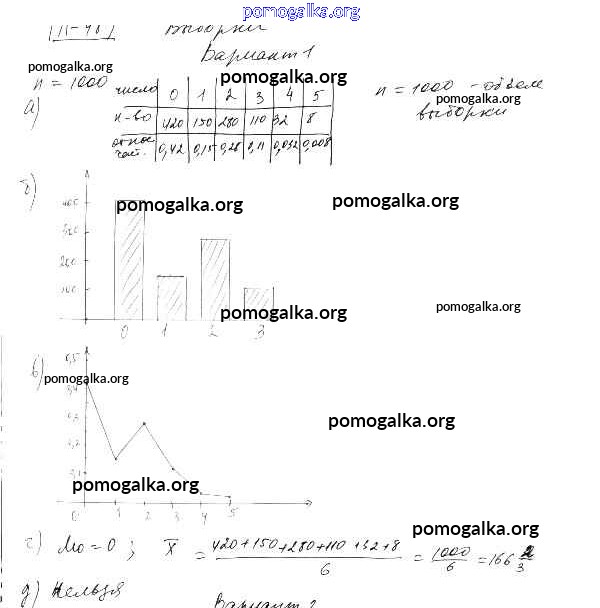 pomogalka.org
Выборки
Вариант 1
pomogalka.org
n = 1000
а)
число 0 1 2 3 4 5
pomogalka.org
к-во 420 150 280 110 32 8
относ. час. 0,42 0,15 0,28 0,11 0,032 0,008
n = 1000 - объем
pomogalka.org
выборки
б)
400
300
200
100
pomogalka.org
pomogalka.org
pomogalka.org
pomogalka.org
0 1 2 3
в)
0,5
pomogalka.org
pomogalka.org
pomogalka.org
0 1 2 3 4 5
pomogalka.org
г) Mo = 0 ; X̄ = (420+150+280+110+32+8)/6 = 1000/6 = 166 2/3
д) Нельзя
Вариант 2